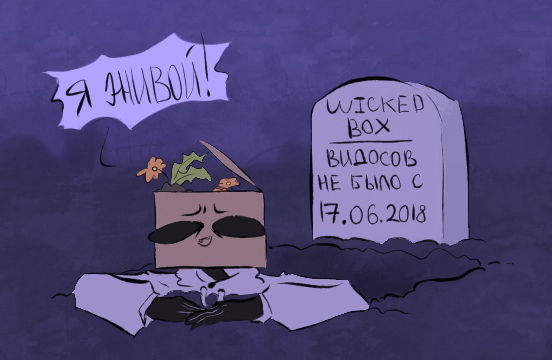 Я ЖИВОЙ!
WICKED
BOX
ВИДОСОВ
НЕ БЫЛО С
17.06.2018